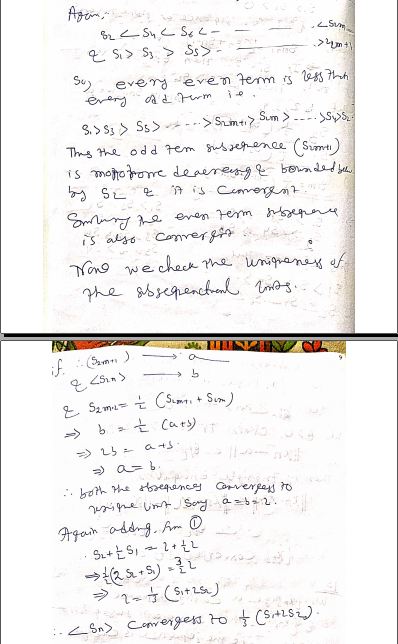 Again,
S2 < S4 < S6 < - - - - . < S2m
& S1 > S3 > S5 > - - > S2m+1
So, every even term is less than
every odd term i.e.
S1 > S3 > S5 > - - - -> S2m+1 > S2m > - - - - > S4 > S2
Thus the odd term subsequence (S2m+1)
is monotone decreasing & bounded below
by S2 & it is Convergent
Similarly the even term subsequence
is also convergent.
Now we check the uniqueness of
the subsequential limits.
if ∴ (S2m+1) → a
& <S2n> → b
& S2m+2 = 1/2 (S2m+1 + S2m)
⇒ b = 1/2 (a+b)
⇒ 2b = a+b
⇒ a = b.
∴ both the subsequences converges to
unique limit say a = b = l.
Again adding, from ①
S2 + 1/2 S1 = l + 1/2 l
⇒ 1/2 (2S2 + S1) = 3/2 l
⇒ l = 1/3 (S1 + 2S2)
∴ <Sn> Converges to 1/3 (S1 + 2S2).